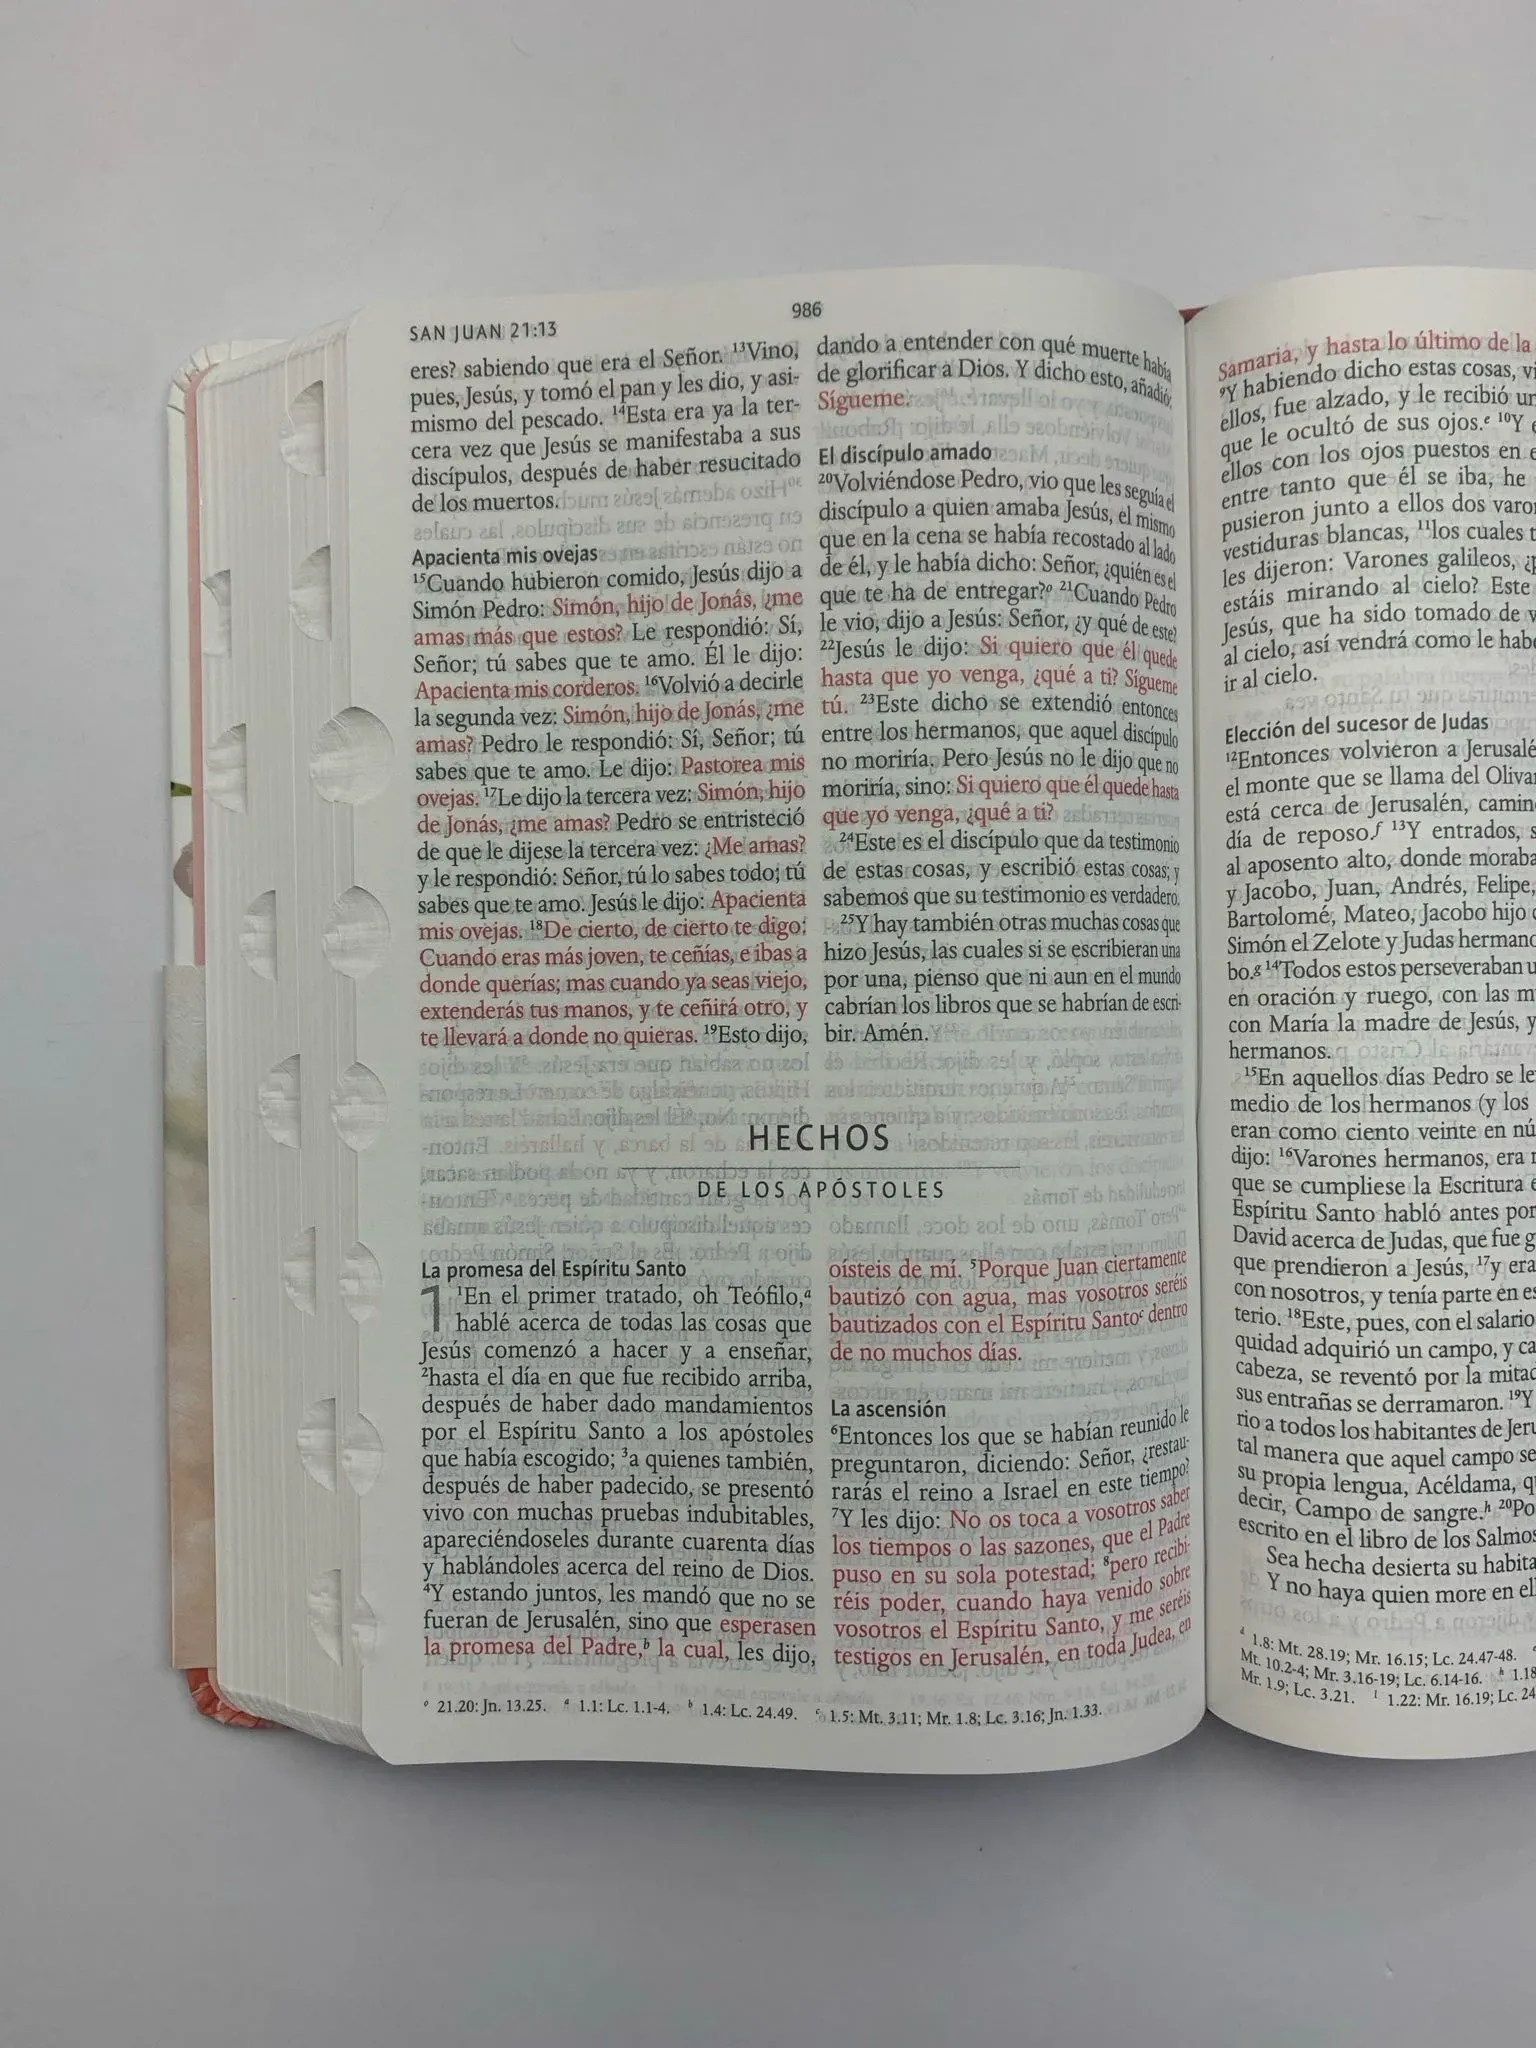 SAN JUAN 21:13
986
eres? sabiendo que era el Señor. ¹³Vino,
pues, Jesús, y tomó el pan y les dio, y asi-
mismo del pescado. ¹⁴Esta era ya la ter-
cera vez que Jesús se manifestaba a sus
discípulos, después de haber resucitado
de los muertos.
Apacienta mis ovejas
¹⁵Cuando hubieron comido, Jesús dijo a
Simón Pedro: Simón, hijo de Jonás, ¿me
amas más que estos? Le respondió: Sí,
Señor; tú sabes que te amo. Él le dijo:
Apacienta mis corderos. ¹⁶Volvió a decirle
la segunda vez: Simón, hijo de Jonás, ¿me
amas? Pedro le respondió: Sí, Señor; tú
sabes que te amo. Le dijo: Pastorea mis
ovejas. ¹⁷Le dijo la tercera vez: Simón, hijo
de Jonás, ¿me amas? Pedro se entristeció
de que le dijese la tercera vez: ¿Me amas?
y le respondió: Señor, tú lo sabes todo; tú
sabes que te amo. Jesús le dijo: Apacienta
mis ovejas. ¹⁸De cierto, de cierto te digo:
Cuando eras más joven, te ceñías, e ibas a
donde querías; mas cuando ya seas viejo,
extenderás tus manos, y te ceñirá otro, y
te llevará a donde no quieras. ¹⁹Esto dijo,
dando a entender con qué muerte había
de glorificar a Dios. Y dicho esto, añadió:
Sígueme.
El discípulo amado
²⁰Volviéndose Pedro, vio que les seguía el
discípulo a quien amaba Jesús, el mismo
que en la cena se había recostado al lado
de él, y le había dicho: Señor, ¿quién es el
que te ha de entregar?ᵒ ²¹Cuando Pedro
le vio, dijo a Jesús: Señor, ¿y qué de este?
²²Jesús le dijo: Si quiero que él quede
hasta que yo venga, ¿qué a ti? Sígueme
tú. ²³Este dicho se extendió entonces
entre los hermanos, que aquel discípulo
no moriría. Pero Jesús no le dijo que no
moriría, sino: Si quiero que él quede hasta
que yo venga, ¿qué a ti?
²⁴Este es el discípulo que da testimonio
de estas cosas, y escribió estas cosas; y
sabemos que su testimonio es verdadero.
²⁵Y hay también otras muchas cosas que
hizo Jesús, las cuales si se escribieran una
por una, pienso que ni aun en el mundo
cabrían los libros que se habrían de escri-
bir. Amén.
HECHOS
DE LOS APÓSTOLES
La promesa del Espíritu Santo
1 ¹En el primer tratado, oh Teófilo,ᵃ
hablé acerca de todas las cosas que
Jesús comenzó a hacer y a enseñar,
²hasta el día en que fue recibido arriba,
después de haber dado mandamientos
por el Espíritu Santo a los apóstoles
que había escogido; ³a quienes también,
después de haber padecido, se presentó
vivo con muchas pruebas indubitables,
apareciéndoseles durante cuarenta días
y hablándoles acerca del reino de Dios.
⁴Y estando juntos, les mandó que no se
fueran de Jerusalén, sino que esperasen
la promesa del Padre,ᵇ la cual, les dijo,
oísteis de mí. ⁵Porque Juan ciertamente
bautizó con agua, mas vosotros seréis
bautizados con el Espíritu Santoᶜ dentro
de no muchos días.
La ascensión
⁶Entonces los que se habían reunido le
preguntaron, diciendo: Señor, ¿restau-
rarás el reino a Israel en este tiempo?
⁷Y les dijo: No os toca a vosotros saber
los tiempos o las sazones, que el Padre
puso en su sola potestad; ⁸pero recibi-
réis poder, cuando haya venido sobre
vosotros el Espíritu Santo, y me seréis
testigos en Jerusalén, en toda Judea, en
ᵒ 21.20: Jn. 13.25. ᵃ 1.1: Lc. 1.1-4. ᵇ 1.4: Lc. 24.49. ᶜ 1.5: Mt. 3.11; Mr. 1.8; Lc. 3.16; Jn. 1.33.
Samaria, y hasta lo último de la
⁹Y habiendo dicho estas cosas,
ellos, fue alzado, y le recibió
que le ocultó de sus ojos.ᵉ ¹⁰Y
ellos con los ojos puestos en
entre tanto que él se iba, he
pusieron junto a ellos dos
vestiduras blancas, ¹¹los cuales
les dijeron: Varones galileos,
estáis mirando al cielo? Este
Jesús, que ha sido tomado de
al cielo, así vendrá como le
ir al cielo.
Elección del sucesor de Judas
¹²Entonces volvieron a
el monte que se llama del
está cerca de Jerusalén,
día de reposo.ᶠ ¹³Y entrados,
al aposento alto, donde
y Jacobo, Juan, Andrés, Felipe,
Bartolomé, Mateo, Jacobo hijo
Simón el Zelote y Judas
bo.ᵍ ¹⁴Todos estos perseveraban
en oración y ruego, con las
con María la madre de Jesús, y
hermanos.
¹⁵En aquellos días Pedro se
medio de los hermanos (y los
eran como ciento veinte en
dijo: ¹⁶Varones hermanos, era
que se cumpliese la Escritura
Espíritu Santo habló antes por
David acerca de Judas, que fue
que prendieron a Jesús, ¹⁷y era
con nosotros, y tenía parte en
terio. ¹⁸Este, pues, con el salario
quidad adquirió un campo, y
cabeza, se reventó por la
sus entrañas se derramaron. ¹⁹Y
rio a todos los habitantes de
tal manera que aquel campo se
su propia lengua, Acéldama,
decir, Campo de sangre.ʰ
escrito en el libro de los
Sea hecha desierta su
Y no haya quien more en
ᵈ 1.8: Mt. 28.19; Mr. 16.15; Lc. 24.47-48.
Mt. 10.2-4; Mr. 3.16-19; Lc. 6.14-16. ʰ
Mr. 1.9; Lc. 3.21. ⁱ 1.22: Mr. 16.19; Lc.